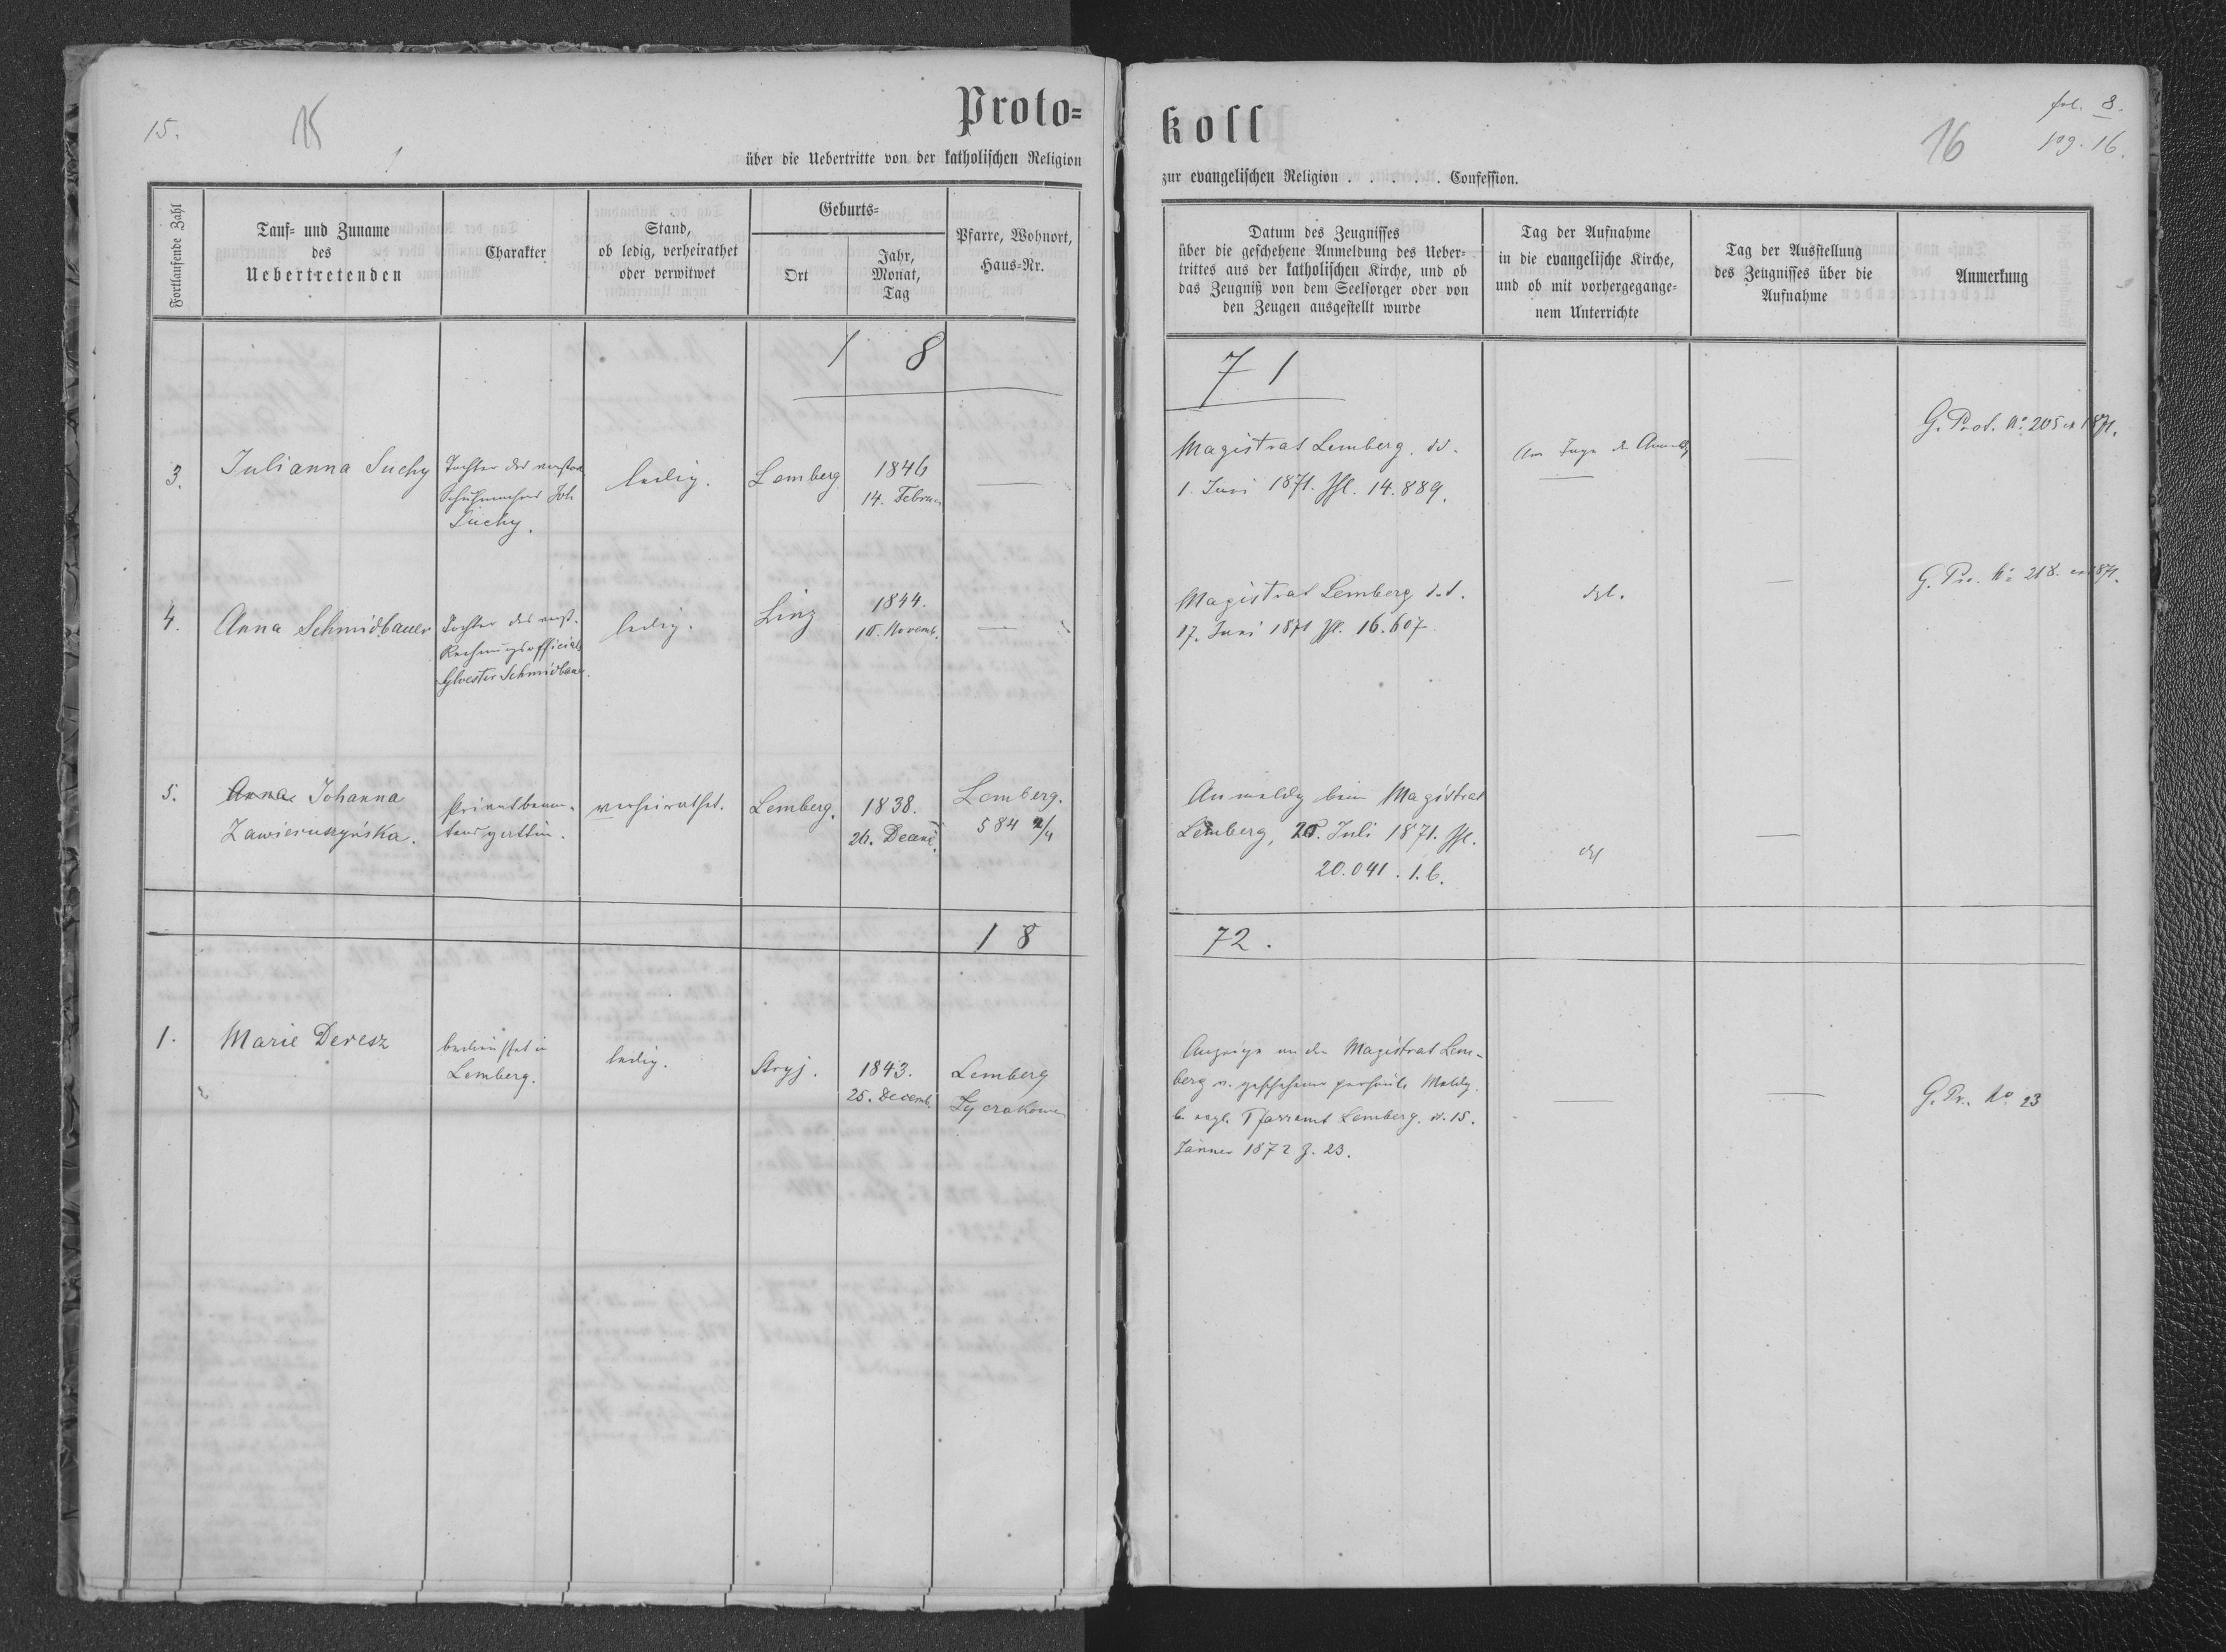 15.
15
Proto=
über die Uebertritte von der katholischen Religion
Fortlaufende Zahl
Tauf= und Zuname
des
Uebertretenden
Charakter
Stand,
ob ledig, verheirathet
oder verwitwet
Geburts=
Ort
Jahr,
Monat,
Tag
Pfarre, Wohnort,
Haus=Nr.
1 8
3.
Julianna Suchy
Tochter des verstorb
Schuhmachers Joh
Suchy.
ledig.
Lemberg
1846
14. Februar
4.
Anna Schmidbauer
Tochter des verst.
Rechnungsofficials
Sylvester Schmidbauer.
ledig.
Linz
1844.
15. Novemb.
5.
Anna Johanna
Zawieruszyńska.
Privatbeam-
tensgattin.
verheirathet.
Lemberg.
1838.
26. Decemb.
Lemberg.
584 2/4
1 8
1.
Marie Deresz
bedienstet in
Lemberg.
ledig.
Stryj.
1843.
25. Decemb.
Lemberg
koll
fol. 8.
16
pag. 16.
zur evangelischen Religion . . . . . Confession.
Datum des Zeugnisses
über die geschehene Anmeldung des Ueber=
trittes aus der katholischen Kirche, und ob
das Zeugniß von dem Seelsorger oder von
den Zeugen ausgestellt wurde
Tag der Aufnahme
in die evangelische Kirche,
und ob mit vorhergegange=
nem Unterrichte
Tag der Ausstellung
des Zeugnisses über die
Aufnahme
Anmerkung
71
Magistrat Lemberg. dd.
1. Juni 1871. Zhl. 14.889.
Am Tage der Anmeldg
G. Prot. No 205 ex 1871.
Magistrat Lemberg d.d.
17. Juni 1871 Zhl. 16.607
dtl.
G. Pr. No 218. ex 1871.
Anmeldg beim Magistrat
Lemberg, 25. Juli 1871. Zhl.
20.041.
dtl
72.
Anzeige an den Magistrat Lem-
berg u. geschehene persönl. Meldg.
b. evgl. Pfarramt Lemberg. d. 15.
Jänner 1872 Z. 23.
G. Pr. No 23